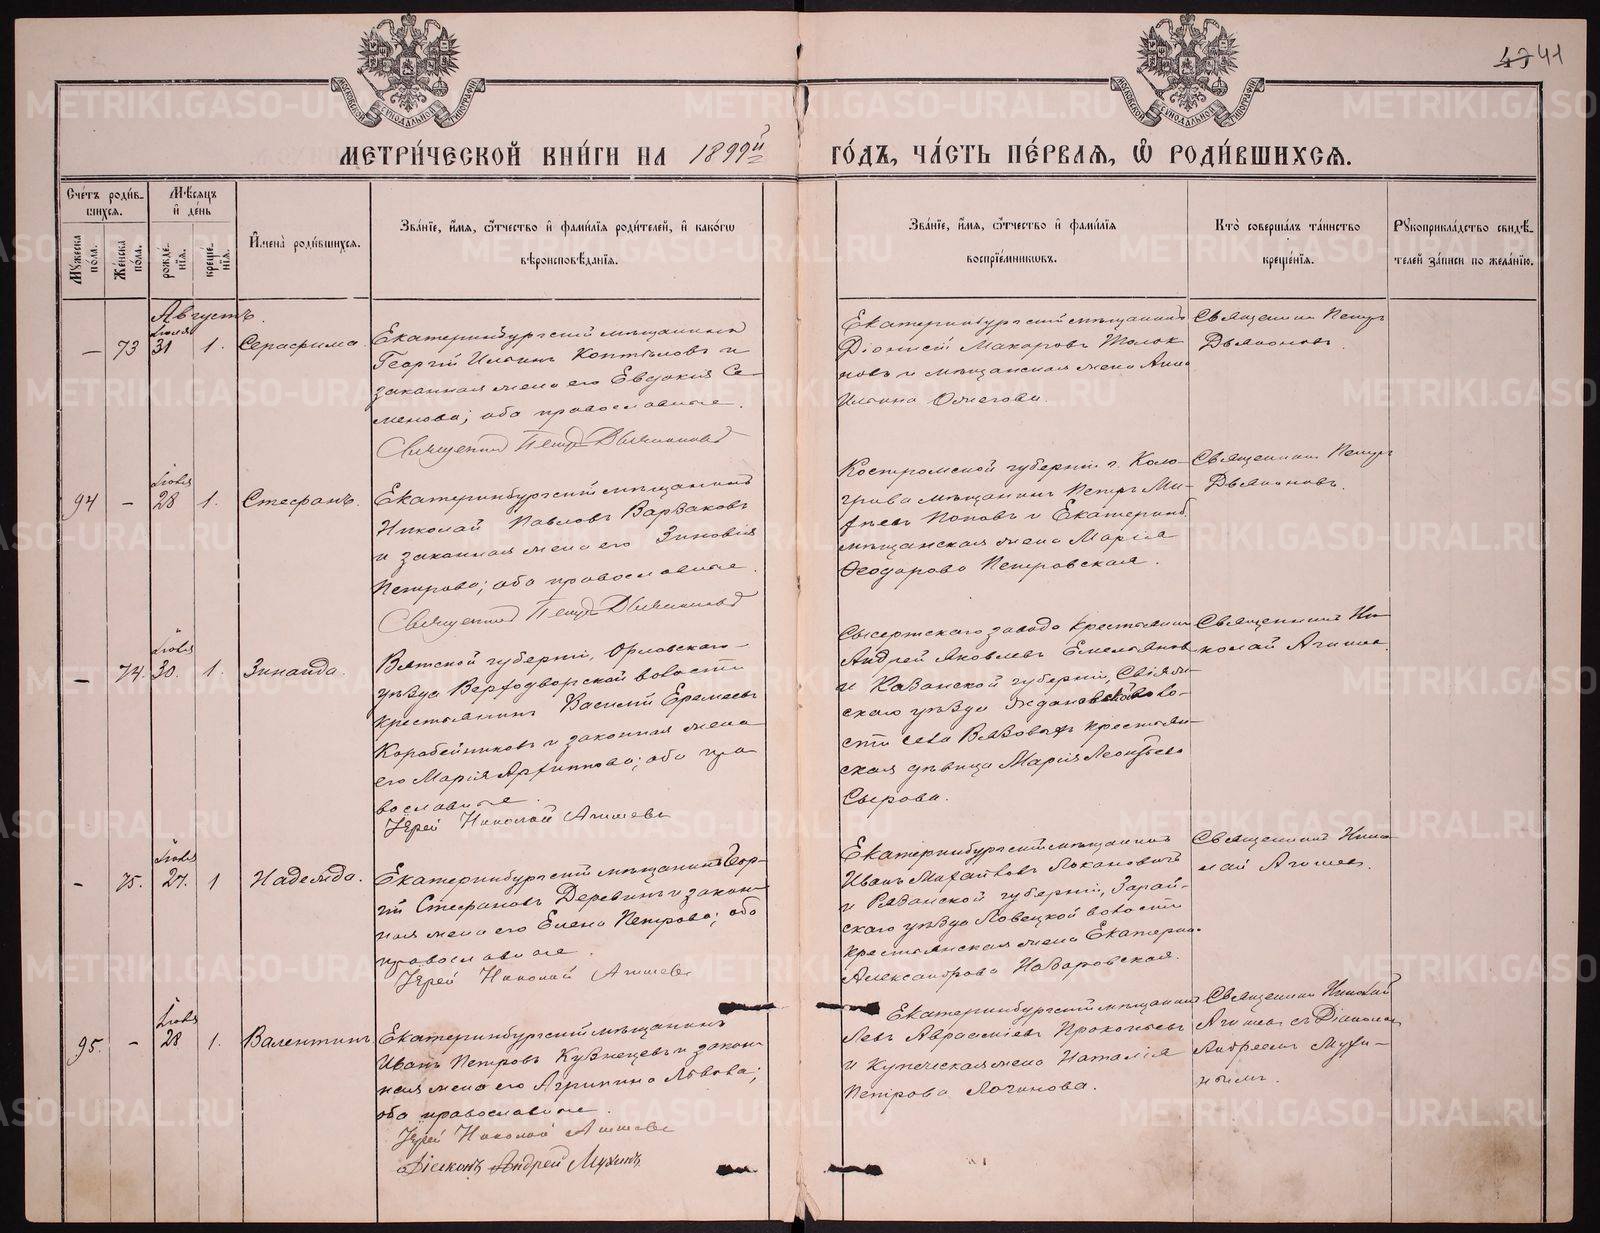 47 41
МЕТРИ́ЧЕСКОЙ КНИ́ГИ НА 1899й
ГО́ДЪ, ЧА́СТЬ ПЕ́РВАЯ, Ѿ РОДИ́ВШИХСЯ.
Сче́тъ роди́в-
шихся.
Мужеска по́ла.
Же́нска по́ла.
Мѣ́сяцъ
и де́нь
рожде́-
нія.
креще́-
нія.
Имена̀ роди́вшихся.
Зва́ніе, и́мя, о́тчество и фами́лія роди́телей, и како́го
вѣроисповѣ́данія.
Зва́ніе, и́мя, о́тчество и фами́лія
воспріе́мниковъ.
Кто̀ соверша́лъ та́инство
креще́нія.
Рукоприкла́дство свидѣ́-
телей за́писи по жела́нію.
Августъ.
– 73 Іюля 31 1. Серафима.
Екатеринбургскій мѣщанинъ
Георгій Ильинъ Коптѣловъ и
законная жена его Евдокія Се-
менова; оба православные.
Священникъ Петръ Дьяконовъ
Екатеринбургскій мѣщанинъ
Діонисій Макаровъ Толок-
новъ и мѣщанская жена Анна
Ильина Ожегова.
Священникъ Петръ
Дьяконовъ.
94 – Іюля 28 1. Стефанъ.
Екатеринбургскій мѣщанинъ
Николай Павловъ Варзаковъ
и законная жена его Зиновія
Петрова; оба православные.
Священникъ Петръ Дьяконовъ
Костромской губерніи г. Коло-
грива мѣщанинъ Петръ Ми-
Поповъ и Екатеринб.
мѣщанская жена Марія
Ѳеодорова Петровская.
Священникъ Петръ
Дьяконовъ.
– 74. Іюля 30. 1. Зинаида.
Вятской губерніи, Орловскаго
уѣзда Верходворской волости
крестьянинъ Василій Еремеевъ
Коробейниковъ и законная жена
его Марія Архиппова; оба пра-
вославные.
Іерей Николай Агишевъ
Сысертскаго завода крестьянинъ
Андрей Яковлевъ Емельяновъ
и Казанской губерніи, Свіяж-
скаго уѣзда во-
сти села Вязовыхъ крестьян-
ская дѣвица Марія Леонтьева
Сырова.
Священникъ Ни-
колай Агишевъ.
– 75. Іюля 27. 1 Надежда.
Екатеринбургскій мѣщанинъ Геор-
гій Стефановъ Деревинъ и закон-
ная жена его Елена Петрова; оба
православные.
Іерей Николай Агишевъ
Екатеринбургскій мѣщанинъ
Иванъ Михайловъ Лохановичъ
и Рязанской губерніи, Зарай-
скаго уѣзда Ловецкой волости
крестьянская жена Екатерина
Александрова Назаровская.
Священникъ Нико-
лай Агишев.
95. – Іюля 28 1. Валентинъ
Екатеринбургскій мѣщанинъ
Иванъ Петровъ Кузнецовъ и закон-
ная жена его Агрипина Львова;
оба православные.
Іерей Николай Агишевъ
Діаконъ Андрей Мухинъ
Екатеринбургскій мѣщанинъ
Левъ Авраамiевъ Прокопьевъ
и купеческая жена Наталія
Петрова Логинова.
Священникъ Николай
Агишевъ съ Діакономъ
Андреемъ Мухи-
нымъ.